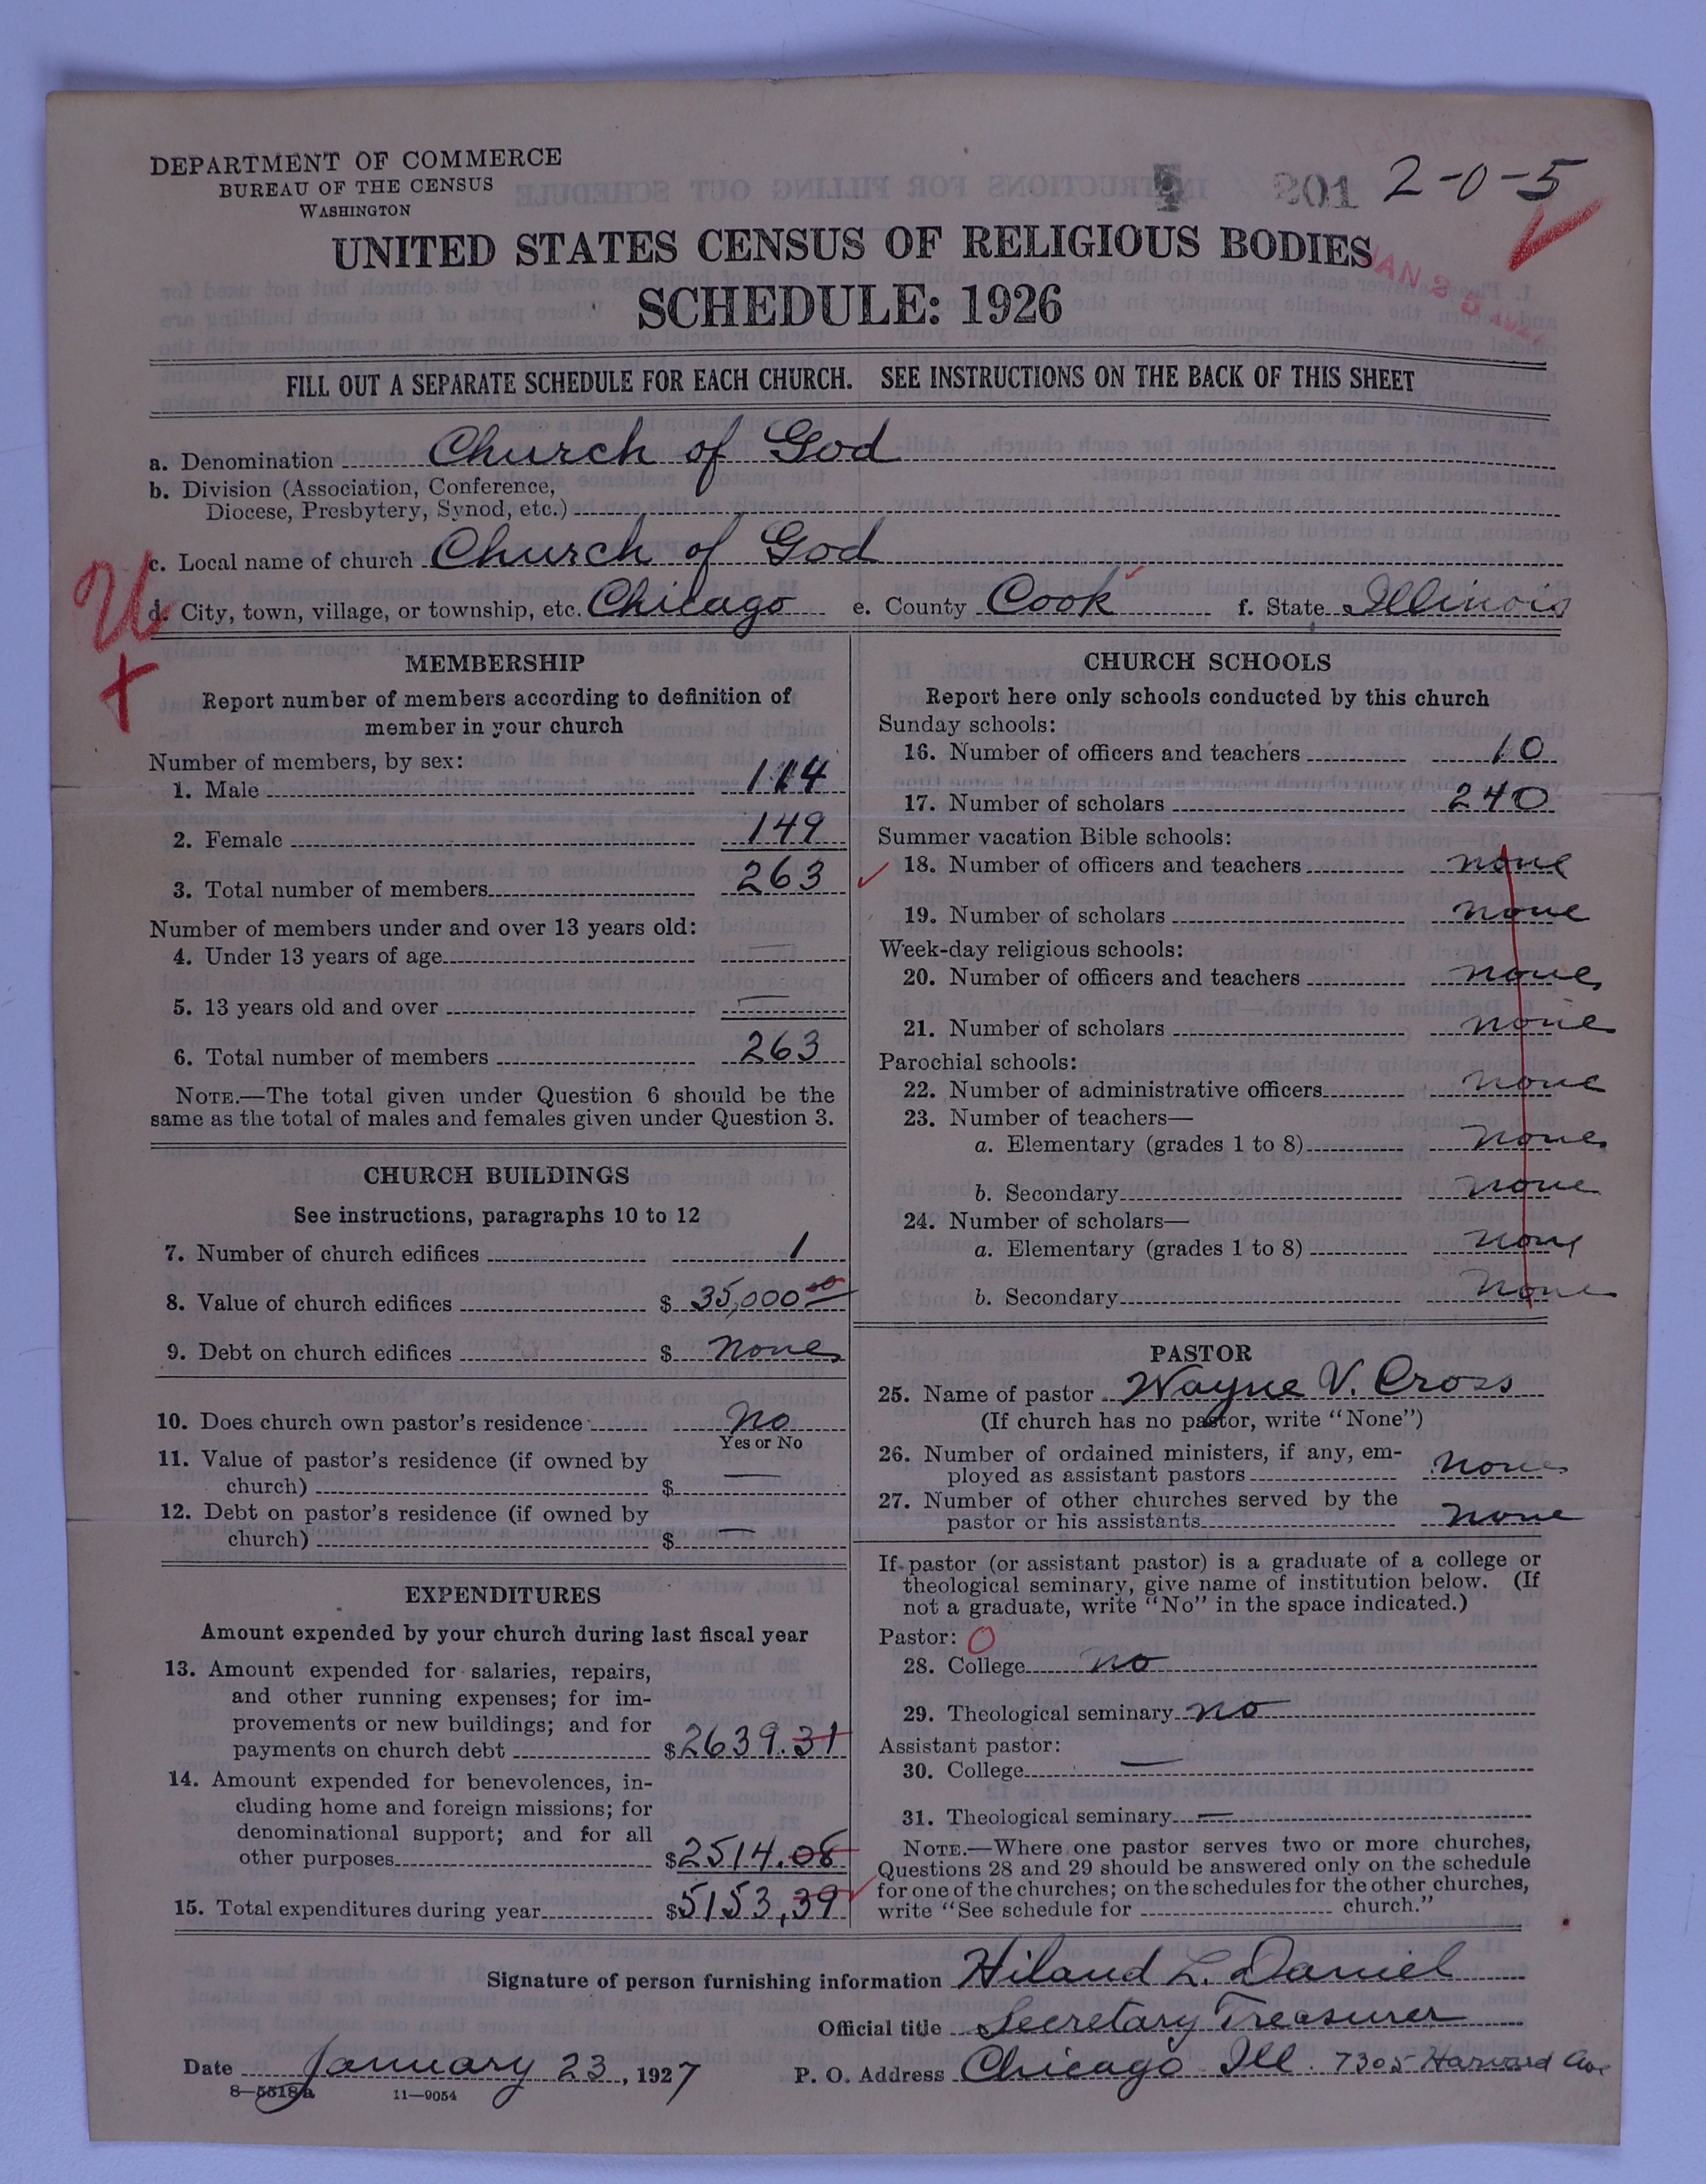 DEPARTMENT OF COMMERCE
BUREAU OF THE CENSUS
WASHINGTON
201 2-0-5
UNITED STATES CENSUS OF RELIGIOUS BODIES
SCHEDULE: 1926
FILL OUT A SEPARATE SCHEDULE FOR EACH CHURCH. SEE INSTRUCTIONS ON THE BACK OF THIS SHEET
a. Denomination Church of God
b. Division (Association, Conference,
Diocese, Presbytery, Synod, etc.)
c. Local name of church Church of God
d. City, town, village, or township, etc. Chicago e. County Cook f. State Illinois
MEMBERSHIP
Report number of members according to definition of
member in your church
Number of members, by sex:
1. Male 114
2. Female 149
3. Total number of members 263
Number of members under and over 13 years old:
4. Under 13 years of age —
5. 13 years old and over —
6. Total number of members 263
NOTE.—The total given under Question 6 should be the
same as the total of males and females given under Question 3.
CHURCH BUILDINGS
See instructions, paragraphs 10 to 12
7. Number of church edifices 1
8. Value of church edifices $ 35,000 00
9. Debt on church edifices $ None
10. Does church own pastor's residence No
Yes or No
11. Value of pastor's residence (if owned by
church) $ —
12. Debt on pastor's residence (if owned by
church) $ —
EXPENDITURES
Amount expended by your church during last fiscal year
13. Amount expended for salaries, repairs,
and other running expenses; for im-
provements or new buildings; and for
payments on church debt $2639.31
14. Amount expended for benevolences, in-
cluding home and foreign missions; for
denominational support; and for all
other purposes $2514.08
15. Total expenditures during year $5153.39
CHURCH SCHOOLS
Report here only schools conducted by this church
Sunday schools:
16. Number of officers and teachers 10
17. Number of scholars 240
Summer vacation Bible schools:
18. Number of officers and teachers none
19. Number of scholars none
Week-day religious schools:
20. Number of officers and teachers none
21. Number of scholars none
Parochial schools:
22. Number of administrative officers none
23. Number of teachers—
a. Elementary (grades 1 to 8) none
b. Secondary none
24. Number of scholars—
a. Elementary (grades 1 to 8) none
b. Secondary none
PASTOR
25. Name of pastor Wayne V. Cross
(If church has no pastor, write "None")
26. Number of ordained ministers, if any, em-
ployed as assistant pastors none
27. Number of other churches served by the
pastor or his assistants none
If pastor (or assistant pastor) is a graduate of a college or
theological seminary, give name of institution below. (If
not a graduate, write "No" in the space indicated.)
Pastor: O
28. College no
29. Theological seminary no
Assistant pastor:
30. College —
31. Theological seminary —
NOTE.—Where one pastor serves two or more churches,
Questions 28 and 29 should be answered only on the schedule
for one of the churches; on the schedules for the other churches,
write "See schedule for church."
Signature of person furnishing information Hiland L. Daniel
Official title Secretary Treasurer
Date January 23, 1927 P. O. Address Chicago Ill. 7305 Harvard Ave
8—5518a 11—9054